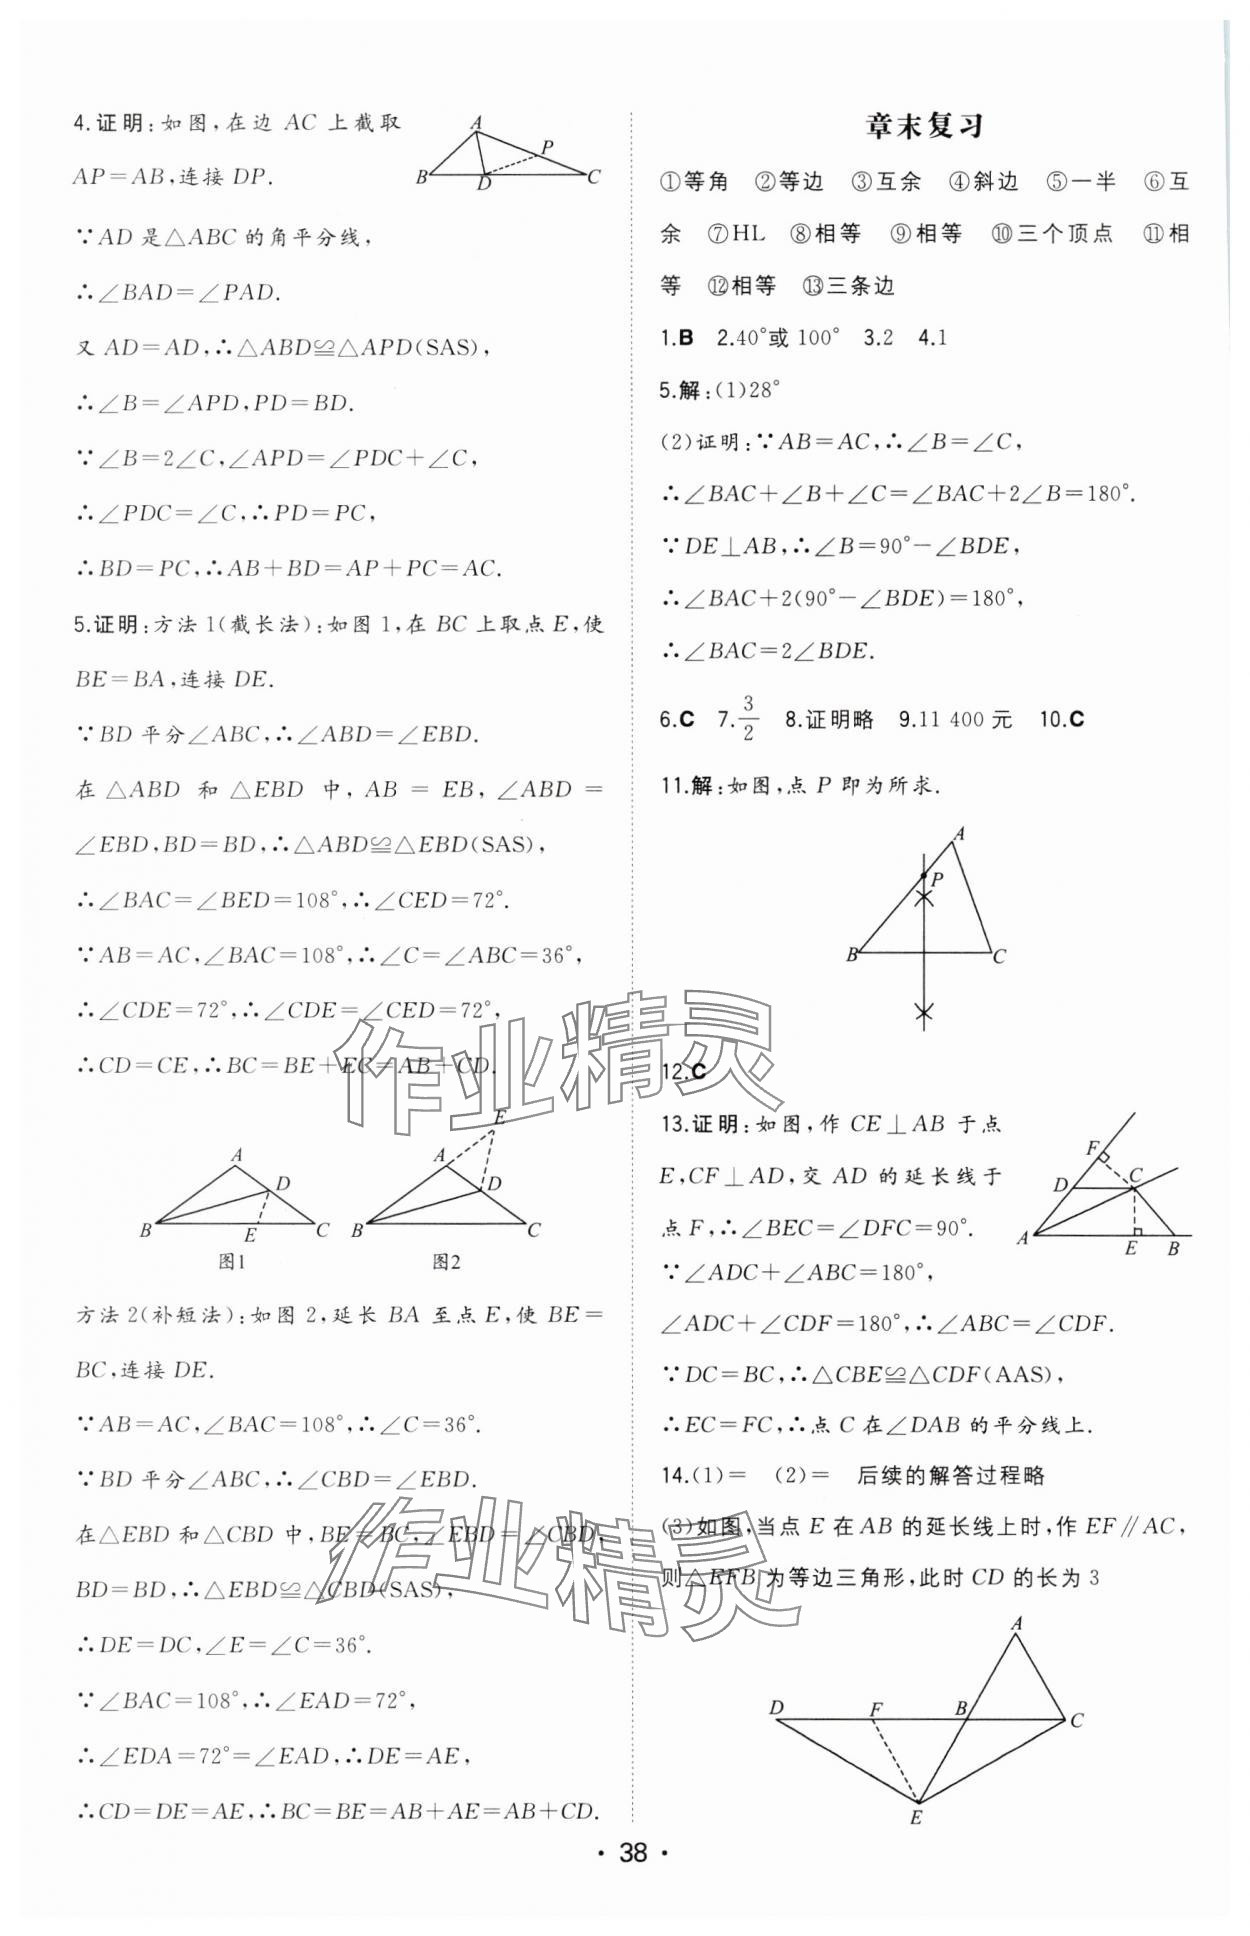 4.证明:如图,在边 AC 上截取
AP=AB,连接 DP.
A
P
B
D
C
∵AD 是△ABC 的角平分线,
∴∠BAD=∠PAD.
又 AD=AD,∴△ABD≌△APD(SAS),
∴∠B=∠APD,PD=BD.
∵∠B=2∠C,∠APD=∠PDC+∠C,
∴∠PDC=∠C,∴PD=PC,
∴BD=PC,∴AB+BD=AP+PC=AC.
5.证明:方法 1(截长法):如图 1,在 BC 上取点 E,使
BE=BA,连接 DE.
∵BD 平分∠ABC,∴∠ABD=∠EBD.
在 △ABD 和 △EBD 中, AB = EB, ∠ABD =
∠EBD,BD=BD,∴△ABD≌△EBD(SAS),
∴∠BAC=∠BED=108°,∴∠CED=72°.
∵AB=AC,∠BAC=108°,∴∠C=∠ABC=36°,
∴∠CDE=72°,∴∠CDE=∠CED=72°,
∴CD=CE,∴BC=BE+EC=AB+CD.
A
D
B
E
C
图1
E
A
D
B
C
图2
方法 2(补短法):如图 2,延长 BA 至点 E,使 BE=
BC,连接 DE.
∵AB=AC,∠BAC=108°,∴∠C=36°.
∵BD 平分∠ABC,∴∠CBD=∠EBD.
在△EBD 和△CBD 中,BE=BC,∠EBD=∠CBD,
BD=BD,∴△EBD≌△CBD(SAS),
∴DE=DC,∠E=∠C=36°.
∵∠BAC=108°,∴∠EAD=72°,
∴∠EDA=72°=∠EAD,∴DE=AE,
∴CD=DE=AE,∴BC=BE=AB+AE=AB+CD.
章末复习
①等角 ②等边 ③互余 ④斜边 ⑤一半 ⑥互
余 ⑦HL ⑧相等 ⑨相等 ⑩三个顶点 ⑪相
等 ⑫相等 ⑬三条边
1.B 2.40°或 100° 3.2 4.1
5.解:(1)28°
(2)证明:∵AB=AC,∴∠B=∠C,
∴∠BAC+∠B+∠C=∠BAC+2∠B=180°.
∵DE⊥AB,∴∠B=90°-∠BDE,
∴∠BAC+2(90°-∠BDE)=180°,
∴∠BAC=2∠BDE.
6.C 7.3/2 8.证明略 9.11 400 元 10.C
11.解:如图,点 P 即为所求.
A
P
B
C
12.C
13.证明:如图,作 CE⊥AB 于点
E,CF⊥AD,交 AD 的延长线于
点 F,∴∠BEC=∠DFC=90°.
F
D
C
A
E
B
∵∠ADC+∠ABC=180°,
∠ADC+∠CDF=180°,∴∠ABC=∠CDF.
∵DC=BC,∴△CBE≌△CDF(AAS),
∴EC=FC,∴点 C 在∠DAB 的平分线上.
14.(1)= (2)= 后续的解答过程略
(3)如图,当点 E 在 AB 的延长线上时,作 EF∥AC,
则△EFB 为等边三角形,此时 CD 的长为 3
A
D
F
B
C
E
作业精灵
作业精灵
• 38 •